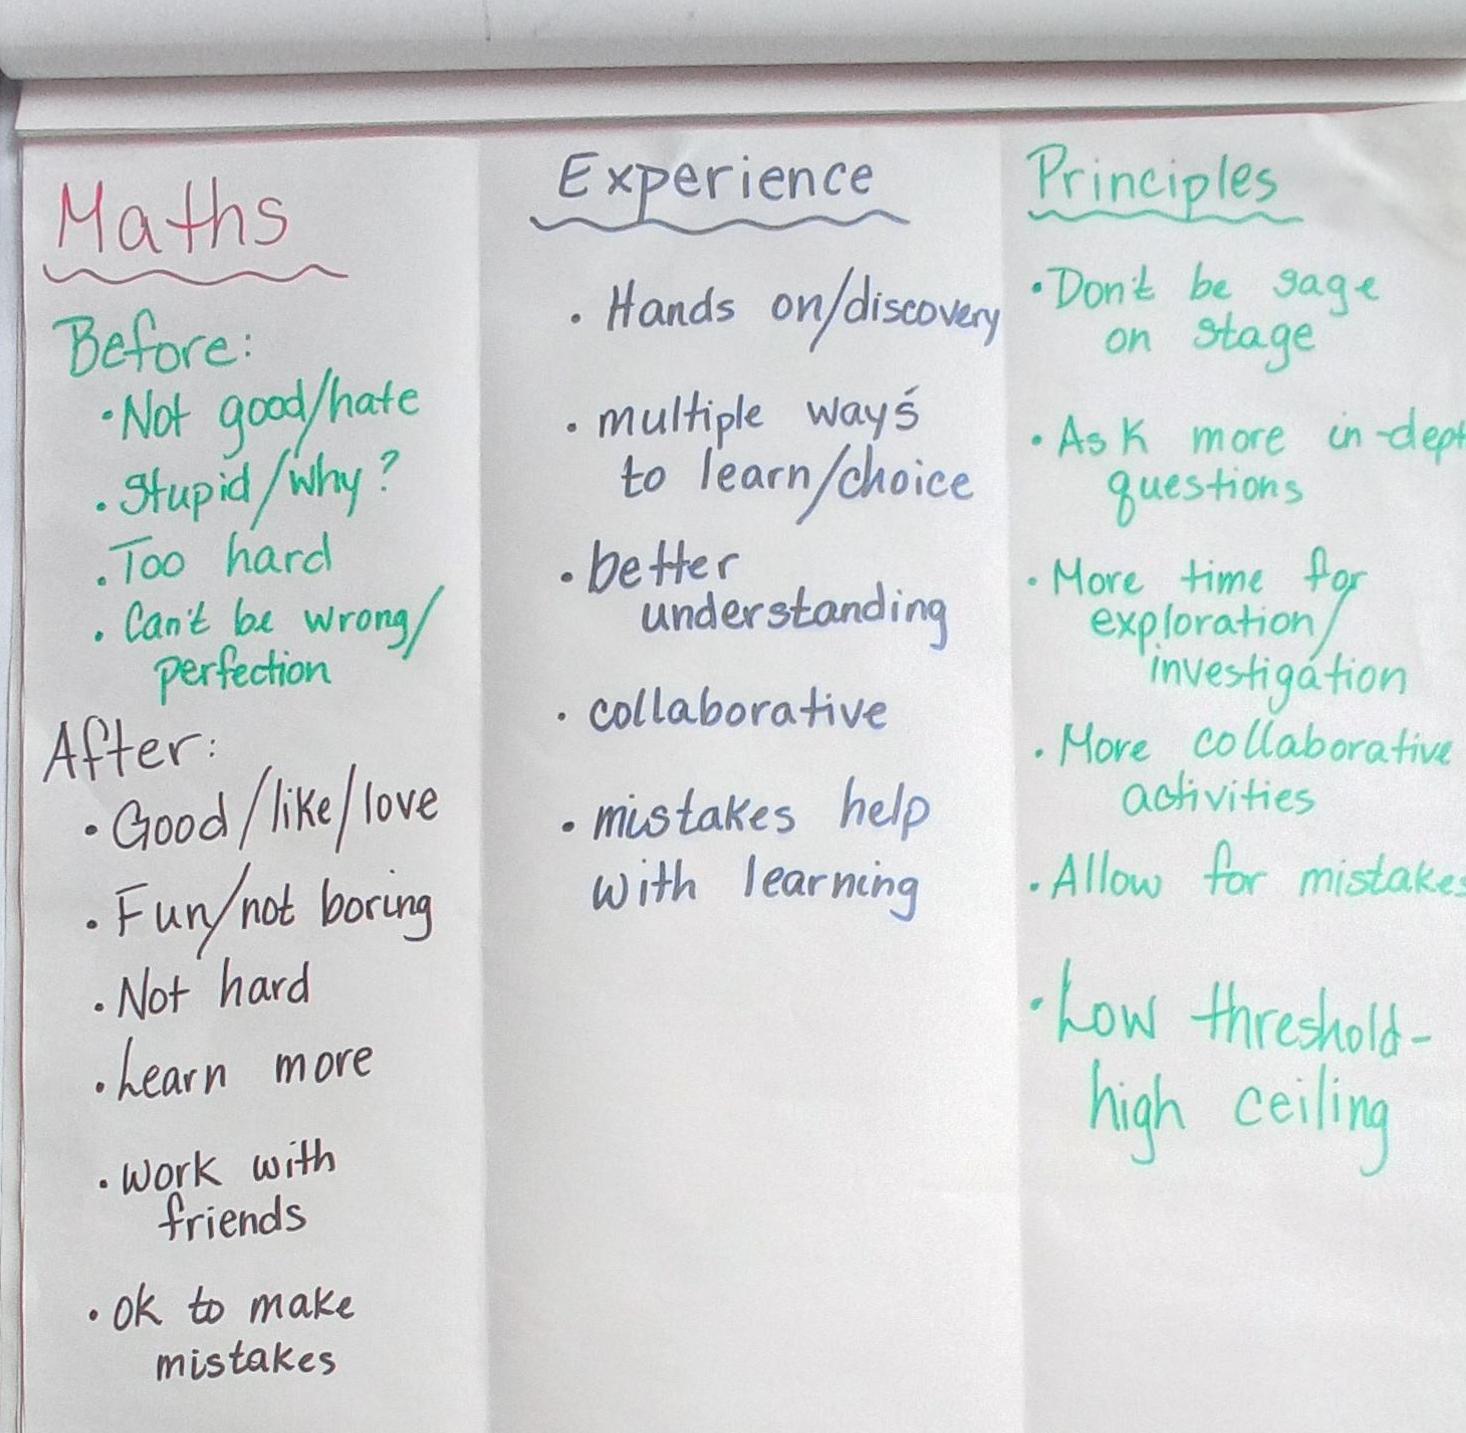 Maths
Before:
• Not good/hate
• Stupid/Why?
• Too hard
• Can't be wrong/
perfection
After:
• Good/like/love
• Fun/not boring
• Not hard
• Learn more
• work with
friends
• ok to make
mistakes
Experience
• Hands on/discovery
• multiple ways
to learn/choice
• better
understanding
• collaborative
• mistakes help
with learning
Principles
• Don't be sage
on stage
• Ask more in-dept
questions
• More time for
exploration/
investigation
• More collaborative
activities
• Allow for mistakes
• Low threshold-
high ceiling